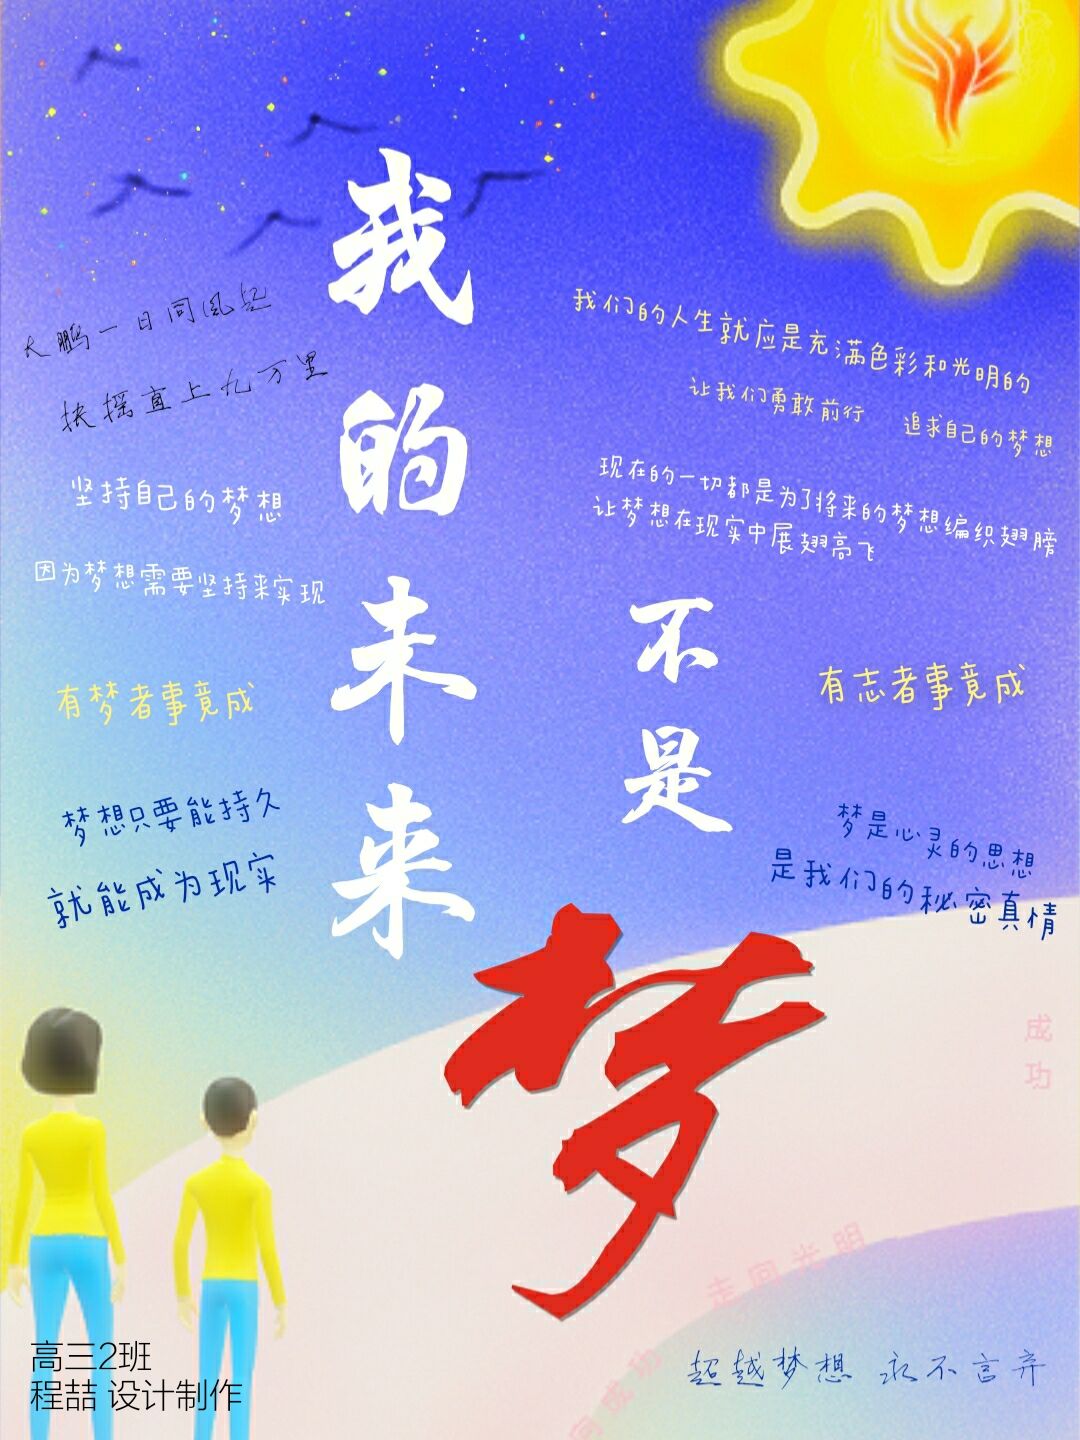 我的未来
不是
梦
大鹏一日同风起
扶摇直上九万里
坚持自己的梦想
因为梦想需要坚持来实现
有梦者事竟成
梦想只要能持久
就能成为现实
我们的人生就应是充满色彩和光明的
让我们勇敢前行 追求自己的梦想
现在的一切都是为了将来的梦想编织翅膀
让梦想在现实中展翅高飞
有志者事竟成
梦是心灵的思想
是我们的秘密真情
成功
走向光明
向成功
超越梦想 永不言弃
高三2班
程喆 设计制作